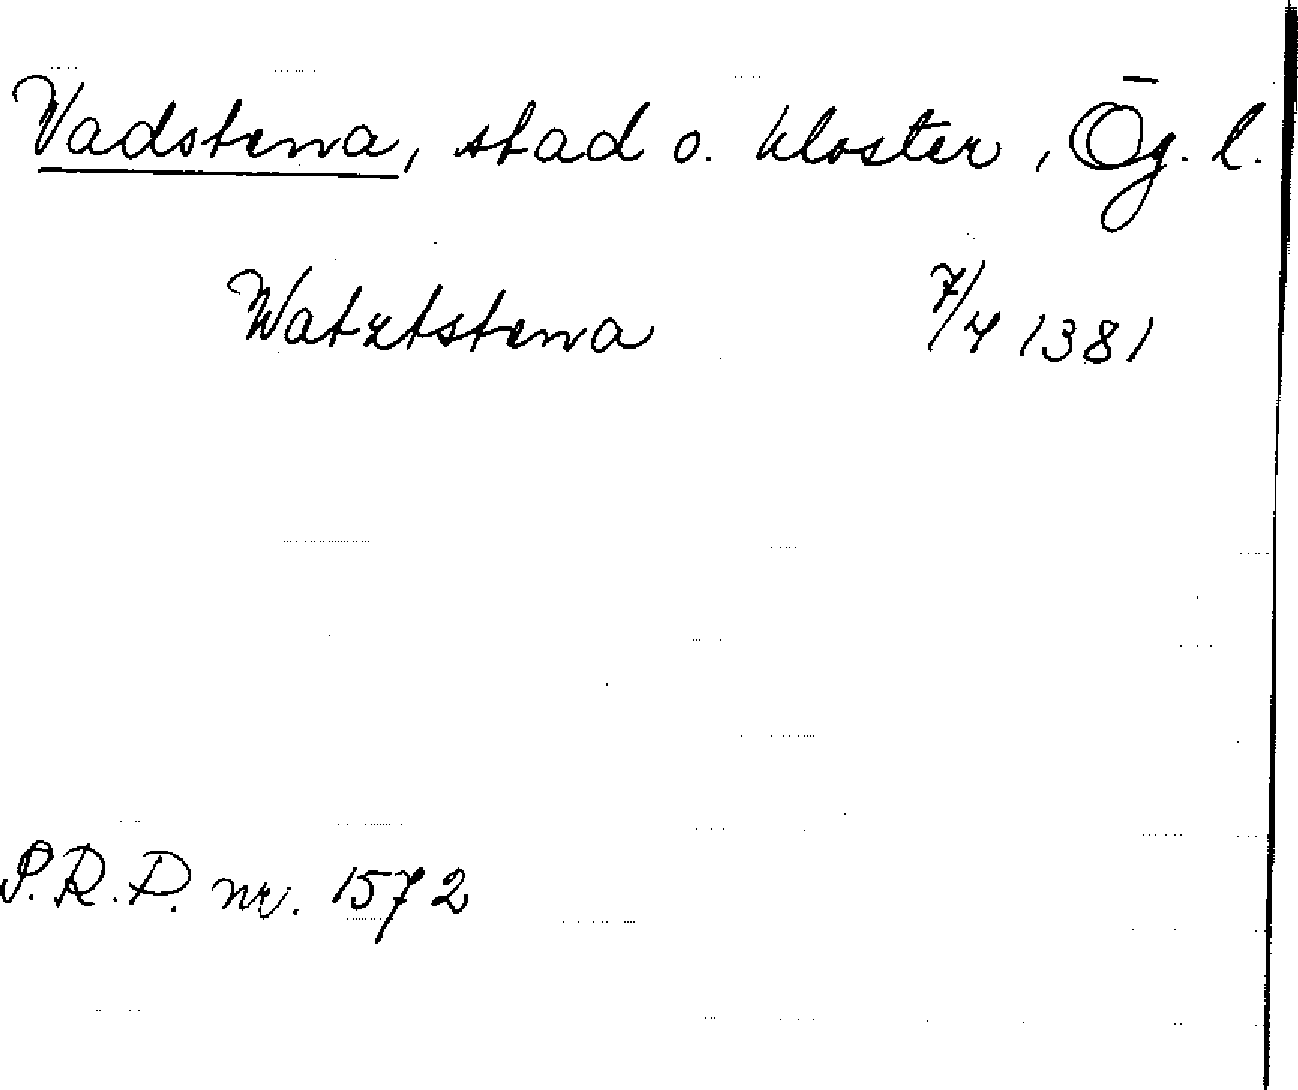 Vadstena, stad o. kloster, Ög. l.
Watztstena 7/4 1381
P.R.D. nr. 1572